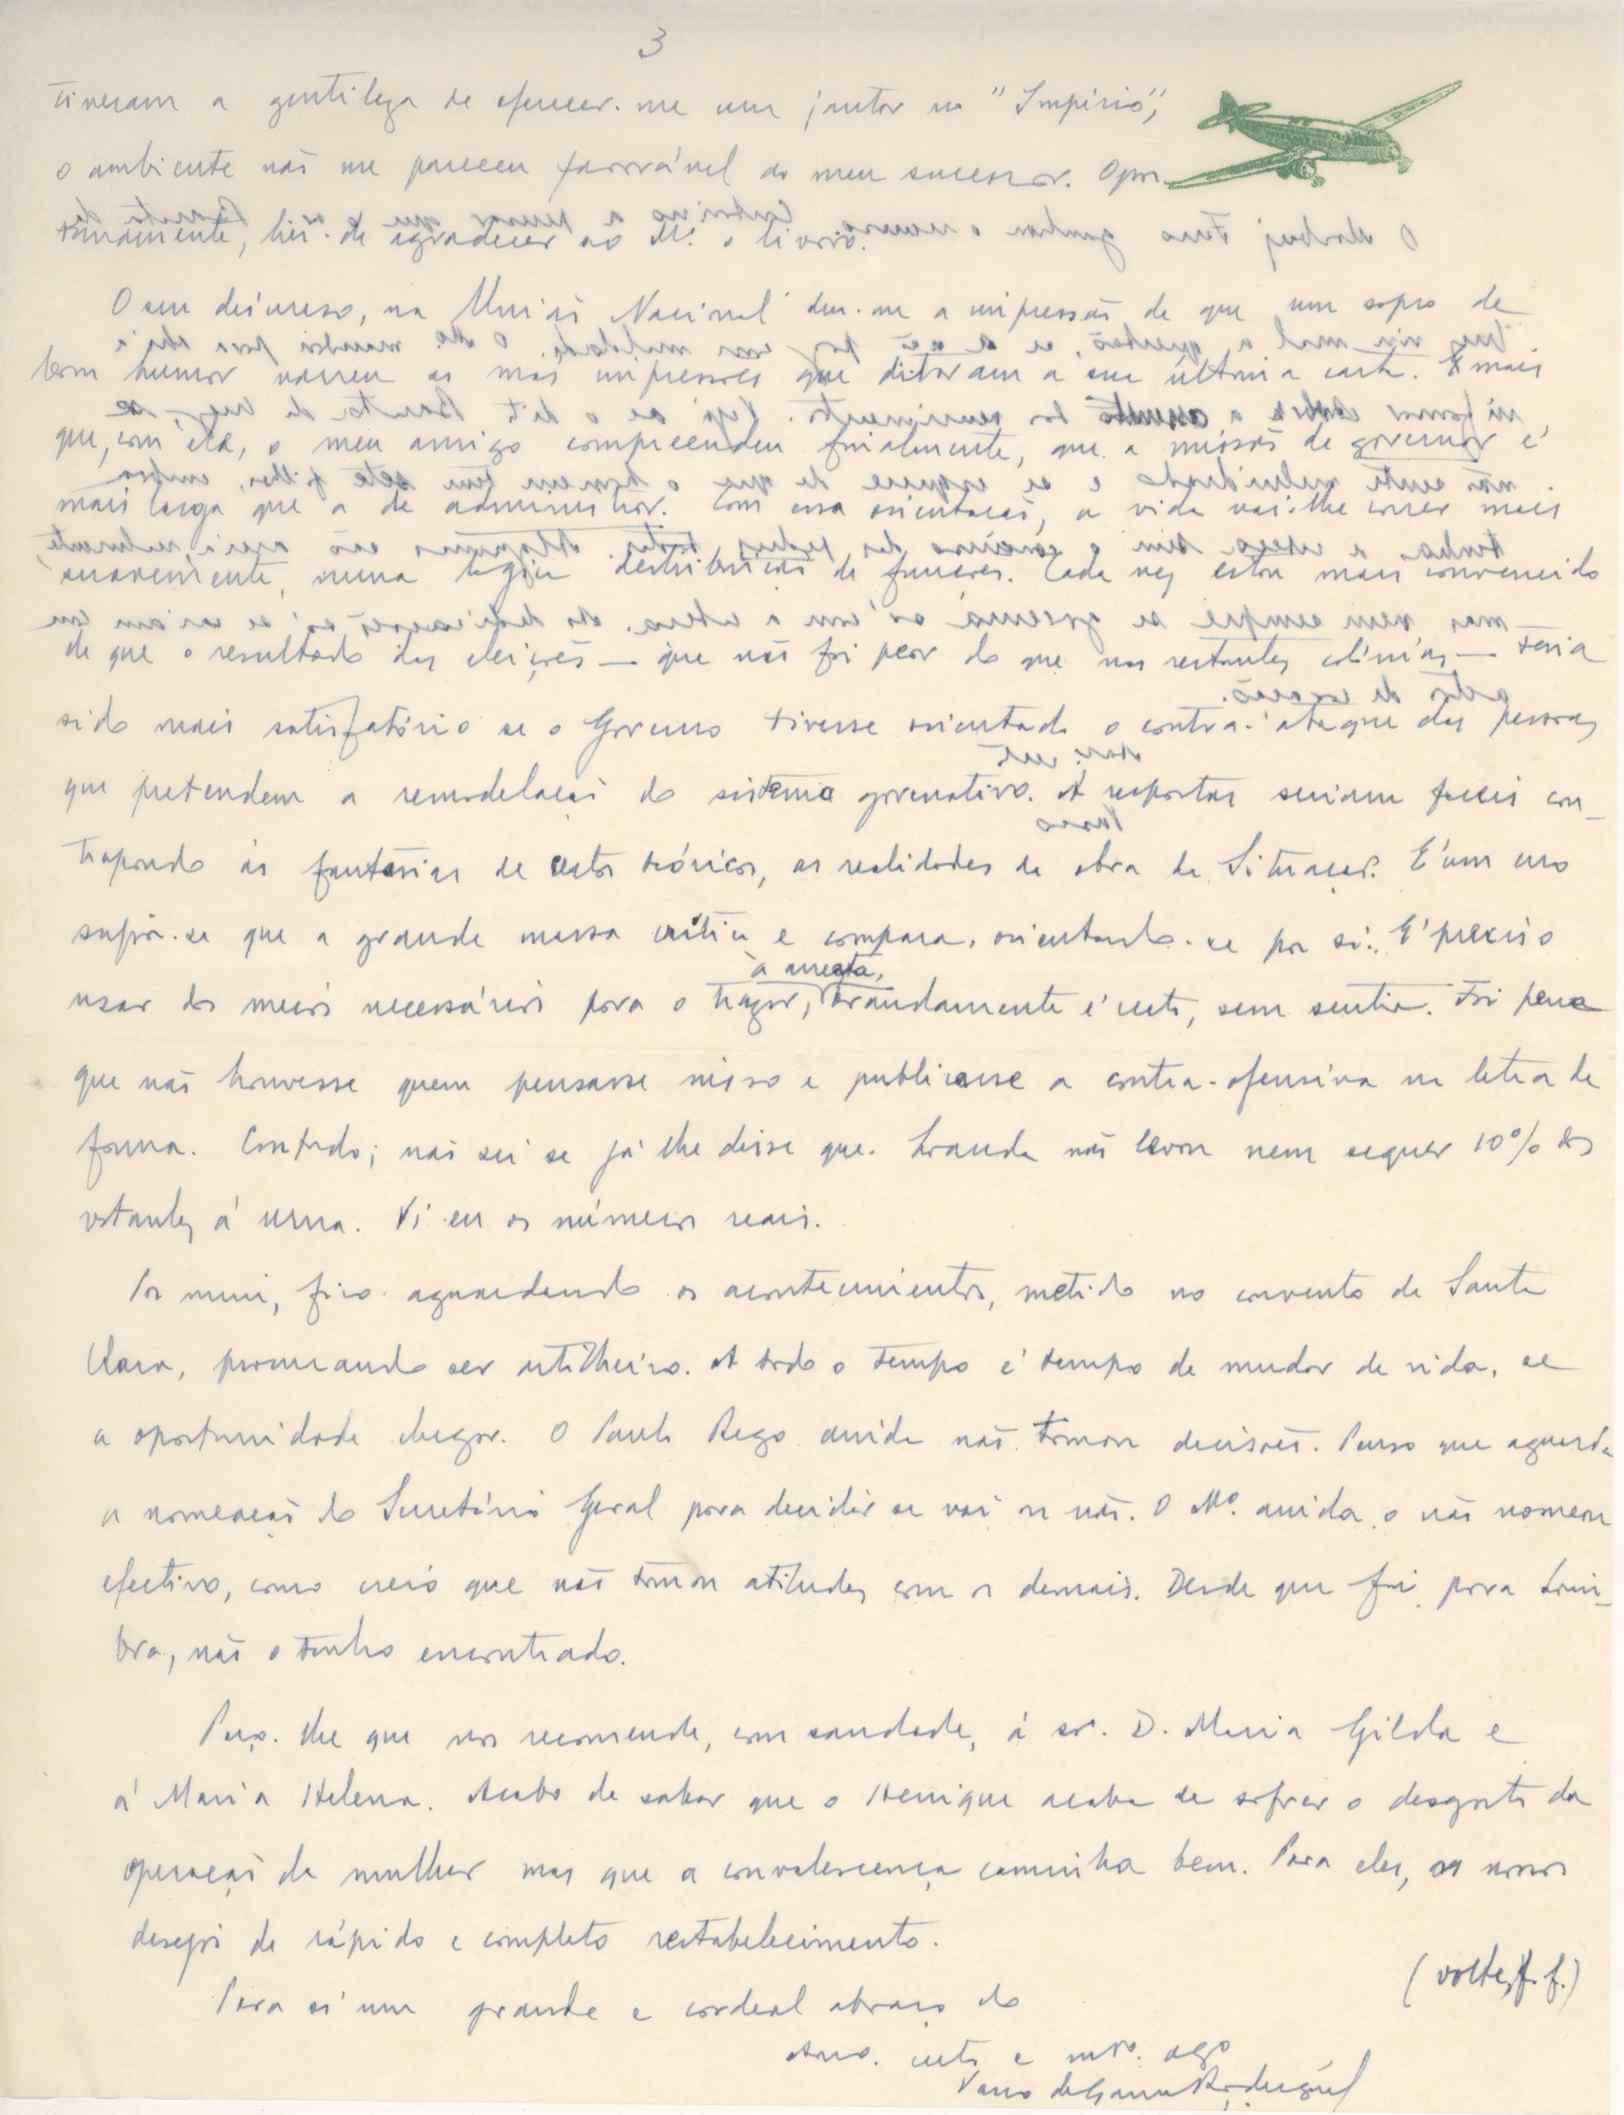 3
tiveram a gentileza de oferecer-me um jantar no "Império",
o ambiente não me pareceu favorável ao meu sucessor. Opor-
tunamente, hei-de agradecer ao Mº. o livro.
O seu discurso, na União Nacional deu-me a impressão de que um sopro de
bom humor varreu as más impressões que ditaram a sua última carta. E mais
que, com ela, o meu amigo compreendeu finalmente, que a missão de governar é
mais larga que a de administrar. Com essa orientação, a vida vai-lhe correr mais
suavemente, numa lógica distribuição de funções. Cada vez estou mais convencido
de que o resultado das eleições — que não foi peor do que nas restantes colónias — teria
sido mais satisfatório se o Governo tivesse orientado o contra-ataque das pessoas
que pretendem a remodelação do sistema governativo. As respostas seriam faceis con-
trapondo às fantasias de certos teóricos, as realidades da obra da Situação. E' um erro
supôr-se que a grande massa critica e compara, orientando-se por si. E' preciso
usar dos meios necessários para o trazer, à arreata, brandamente é certo, sem sentir. Foi pena
que não houvesse quem pensasse nisso e publicasse a contra-ofensiva na letra de
forma. Contudo; não sei se já lhe disse que Luanda não levou nem sequer 10% dos
votantes á urna. Vi eu os números reais.
Por mim, fico aguardando os acontecimentos, metido no convento de Santa
Clara, procurando ser artilheiro. A todo o tempo é tempo de mudar de vida, se
a oportunidade chegar. O Paulo Rego ainda não tomou decisões. Penso que aguarda
a nomeação do Secretário Geral para decidir se vai ou não. O Mº. ainda o não nomeou
efectivo, como creio que não tomou atitudes com os demais. Desde que fui para Coim-
bra, não o tenho encontrado.
Peço-lhe que nos recomende, com saudade, á srª. D. Maria Gilda e
á Maria Helena. Acabo de saber que o Henrique acaba de sofrer o desgosto da
operação da mulher mas que a convalescença caminha bem. Para eles, os nossos
desejos de rápido e completo restabelecimento.
(volte, f. f.)
Para si um grande e cordeal abraço do
Amo. certo e mto. ago
Vasco de Gama Rodrigues